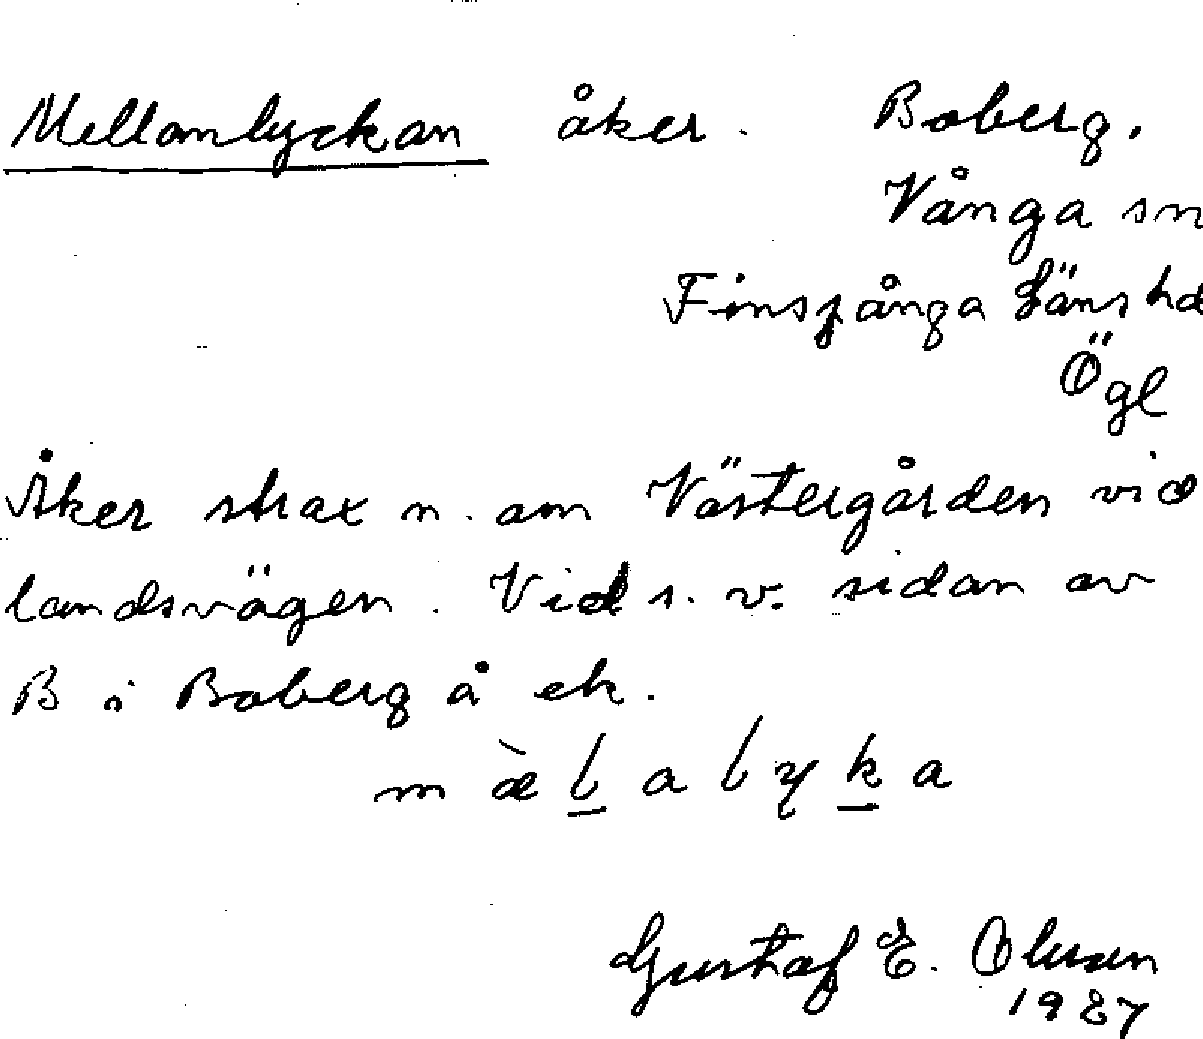 Mellanlyckan åker. Boberg.
Vånga sn
Finspånga Länshd
Ögl
Åker strax n. om Västergården vid
landsvägen. Vid s. v. sidan av
B i Boberg å ek.
m æ̀ l̲ a l y k̲ a
Gustaf E. Olsson
1927